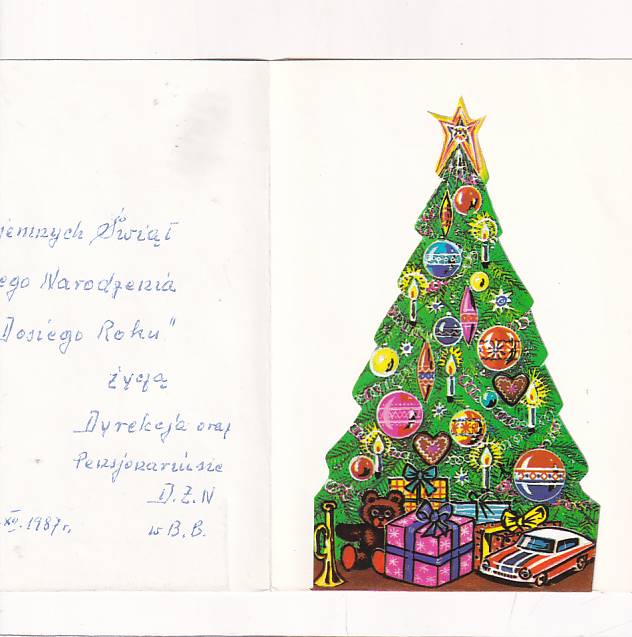 iemnych Świąt
ego Narodzenia
Dosiego Roku"
życzą
Dyrekcja oraz
Pensjonariusze
D.Z.N
XII.1987r. w B.B.